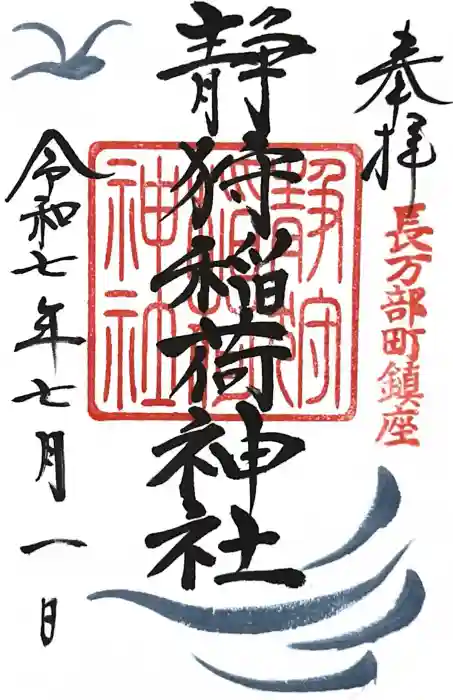 奉拝
長万部町鎮座
静狩稲荷神社
静狩稲荷神社
令和七年七月一日